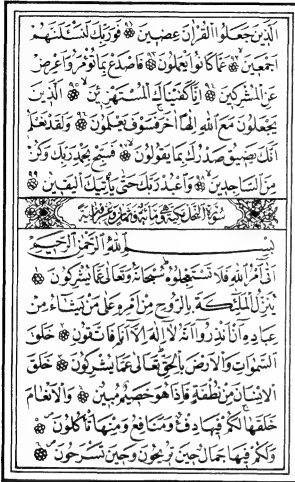 الَّذِينَ جَعَلُوا الْقُرْاٰنَ عِضِينَ ۞ فَوَرَبِّكَ لَنَسْـَٔلَنَّهُمْ
اَجْمَعِينَ ۞ عَمَّا كَانُوا يَعْمَلُونَ ۞ فَاصْدَعْ بِمَا تُؤْمَرُ وَاَعْرِضْ
عَنِ الْمُشْرِكِينَ ۞ اِنَّا كَفَيْنَاكَ الْمُسْتَهْزِئِينَ ۞ الَّذِينَ
يَجْعَلُونَ مَعَ اللّٰهِ اِلٰهًا اٰخَرَ فَسَوْفَ يَعْلَمُونَ ۞ وَلَقَدْ نَعْلَمُ
اَنَّكَ يَضِيقُ صَدْرُكَ بِمَا يَقُولُونَ ۞ فَسَبِّحْ بِحَمْدِ رَبِّكَ وَكُنْ
مِنَ السَّاجِدِينَ ۞ وَاعْبُدْ رَبَّكَ حَتّٰى يَأْتِيَكَ الْيَقِينُ ۞
سورة النحل مكية وهي مائة وثمان وعشرون آية
بِسْمِ اللّٰهِ الرَّحْمٰنِ الرَّحِيمِ
اَتٰى اَمْرُ اللّٰهِ فَلَا تَسْتَعْجِلُوهُ سُبْحَانَهُ وَتَعَالٰى عَمَّا يُشْرِكُونَ ۞
يُنَزِّلُ الْمَلٰٓئِكَةَ بِالرُّوحِ مِنْ اَمْرِهِ عَلٰى مَنْ يَشَاءُ مِنْ
عِبَادِهِ اَنْ اَنْذِرُوا اَنَّهُ لَا اِلٰهَ اِلَّا اَنَا فَاتَّقُونِ ۞ خَلَقَ
السَّمٰوَاتِ وَالْاَرْضَ بِالْحَقِّ تَعَالٰى عَمَّا يُشْرِكُونَ ۞ خَلَقَ
الْاِنْسَانَ مِنْ نُطْفَةٍ فَاِذَا هُوَ خَصِيمٌ مُبِينٌ ۞ وَالْاَنْعَامَ
خَلَقَهَا لَكُمْ فِيهَا دِفْءٌ وَمَنَافِعُ وَمِنْهَا تَأْكُلُونَ ۞
وَلَكُمْ فِيهَا جَمَالٌ حِينَ تُرِيحُونَ وَحِينَ تَسْرَحُونَ ۞